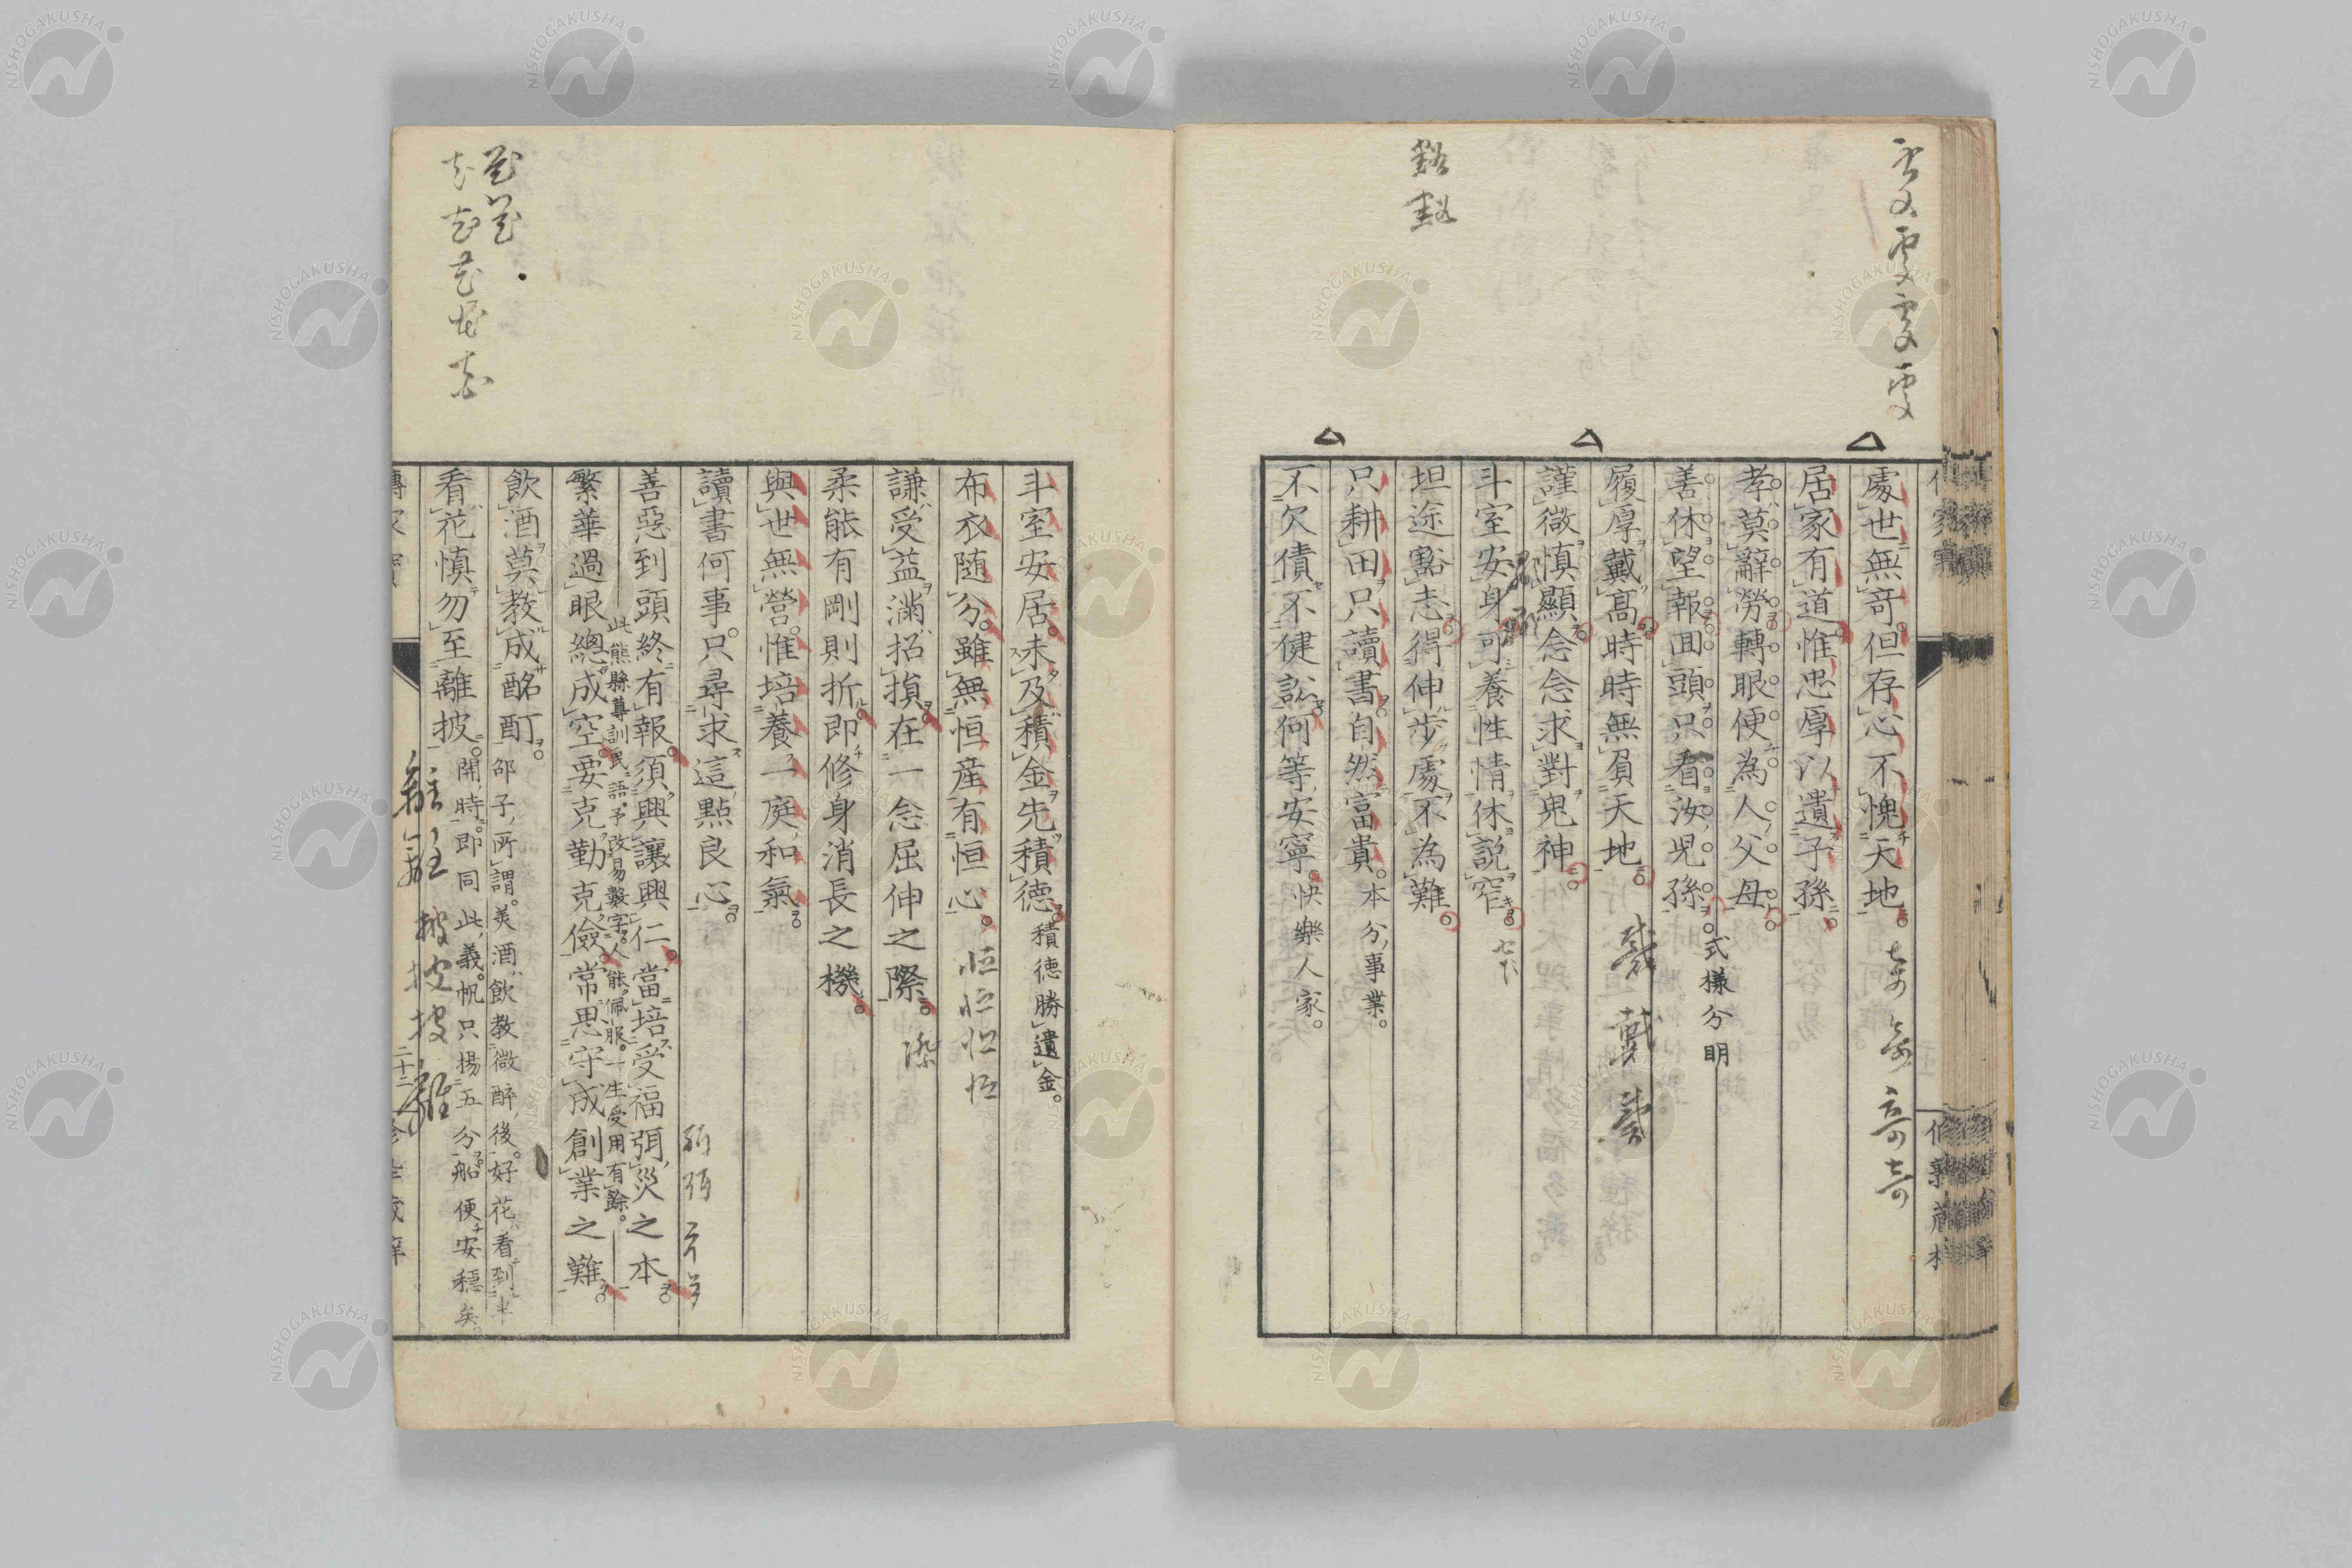 處世無奇但存心不愧天地
居家有道惟忠厚以遺子孫
孝莫辭勞轉眼便為人父母
善休望報囬頭只看汝兒孫 式樣分明
履厚戴高時時無負天地
謹微慎顯念念求對鬼神
斗室安身可養性情休説窄
坦途豁志得伸步處不為難
只耕田只讀書自然富貴 本分事業
不欠債不健訟何等安寧 快樂人家
斗室安居未及積金先積德 積德勝遺金
布衣随分雖無恒産有恒心
謙受益滿招損在一念屈伸之際
柔能有剛則折即修身消長之機
與世無營惟培養一庭和氣
讀書何事只尋求這點良心
善惡到頭終有報須興讓興仁當培受福弭災之本
此熊縣尊訓民語予改易數字人能佩服一生受用有餘
繁華過眼總成空要克勤克儉常思守成創業之難
飲酒莫教成酩酊 邵子所謂美酒飲教微醉後好花看到半
看花慎勿至離披 開時即同此義帆只揚五分船便安穩矣
二十二